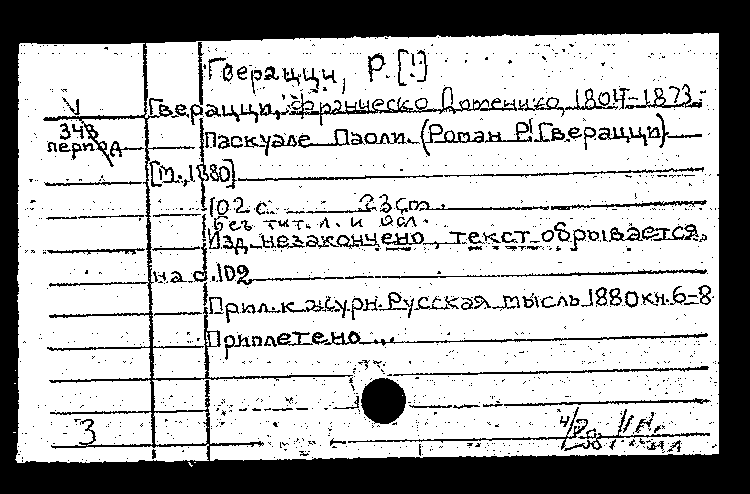 Гверацци, Р. [!]
V
Гверацци, Франческо Доменико, 1804-1873.
343
период
Паскуале Паоли. (Роман Р! Гверацци)
[М., 1880]
102 с. 23 cm.
без тит. л. и обл.
Изд. незакончено, текст обрывается
на с. 102
Прил. к журн. Русская мысль 1880 кн. 6-8
Приплетено...
3